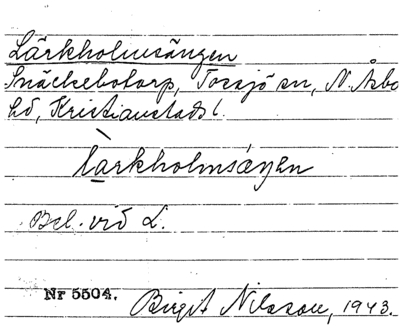 Lärkholmsängen
Snäckebotorp, Tossjö sn, N. Åsbo
hd, Kristianstads l.
`la̠rkholmsáŋen
Bel. vid L.
Nr 5504. Birgit Nilsson, 1943.